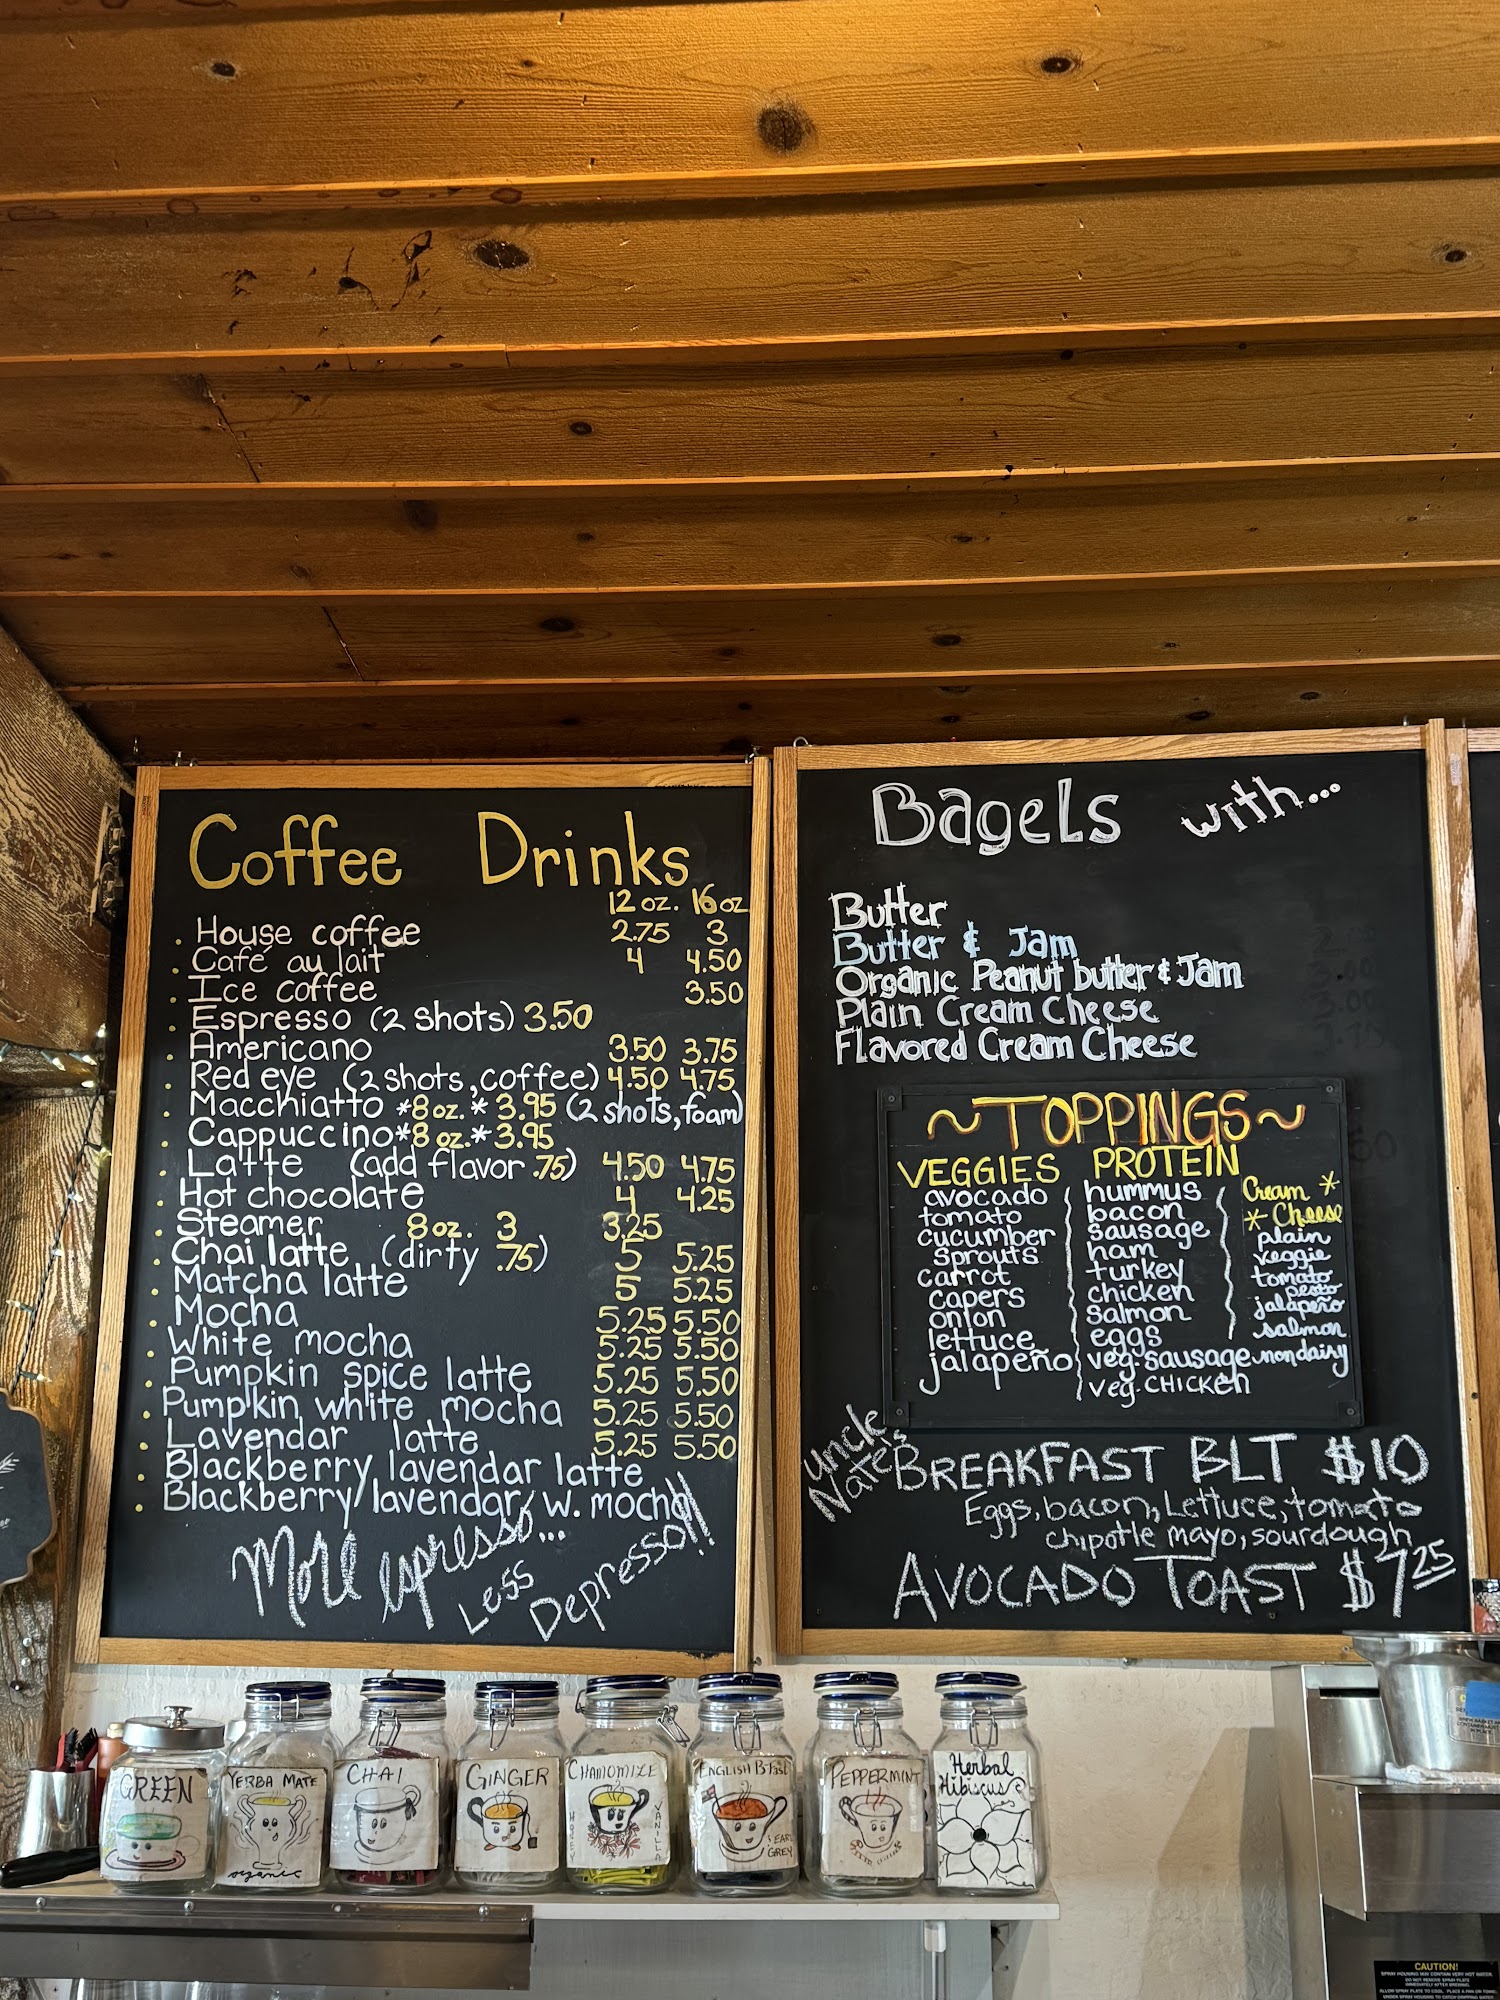 Coffee Drinks
12 oz. 16 oz
. House coffee 2.75 3
. Café au lait 4 4.50
. Ice coffee 3.50
. Espresso (2 shots) 3.50
. Americano 3.50 3.75
. Red eye (2 shots, coffee) 4.50 4.75
. Macchiatto *8 oz.* 3.95 (2 shots, foam)
. Cappuccino *8 oz.* 3.95
. Latte (add flavor .75) 4.50 4.75
. Hot chocolate 4 4.25
. Steamer 8 oz. 3 3.25
. Chai latte (dirty .75) 5 5.25
. Matcha latte 5 5.25
. Mocha 5.25 5.50
. White mocha 5.25 5.50
. Pumpkin spice latte 5.25 5.50
. Pumpkin white mocha 5.25 5.50
. Lavendar latte 5.25 5.50
. Blackberry lavendar latte
. Blackberry lavendar w. mocha
More espresso...
Less
Depresso!!
Bagels with...
Butter
Butter & Jam
Organic Peanut butter & Jam
Plain Cream Cheese
Flavored Cream Cheese
~TOPPINGS~
VEGGIES
avocado
tomato
cucumber
sprouts
carrot
capers
onion
lettuce
jalapeño
PROTEIN
hummus
bacon
sausage
ham
turkey
chicken
salmon
eggs
veg. sausage
veg. CHICKEN
Cream *
* Cheese
plain
veggie
tomato
pesto
jalapeño
salmon
nondairy
Uncle
Nate's
BREAKFAST BLT $10
Eggs, bacon, Lettuce, tomato
chipotle mayo, sourdough
AVOCADO TOAST $7.25
GREEN
YERBA MATE
organic
CHAI
GINGER
CHAMOMILE
HONEY
VANILLA
ENGLISH B-fast
& EARL
GREY
PEPPERMINT
Herbal
Hibiscus
CAUTION!